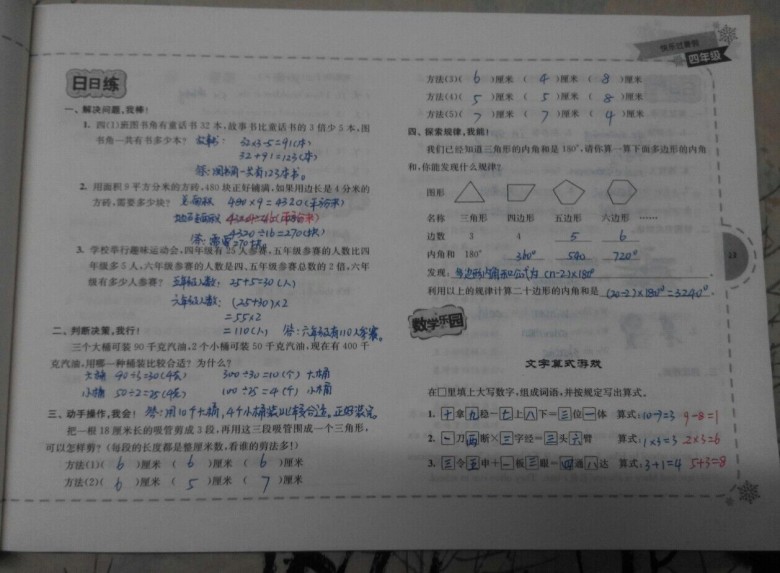 快乐过暑假
四年级
日日练
一、解决问题,我棒!
1. 四(1)班图书角有童话书32本,故事书比童话书的3倍少5本,图
书角一共有书多少本? 故事书: 32×3-5=91(本)
32+91=123(本)
答:图书角一共有123本书。
2. 用面积9平方分米的方砖,480块正好铺满,如果用边长是4分米的
方砖,需要多少块? 总面积 480×9=4320(平方分米)
4320÷16=270(块)
答:需要270块。
3. 学校举行趣味运动会,四年级有25人参赛,五年级参赛的人数比四
年级多5人,六年级参赛的人数是四、五年级参赛总数的2倍,六年
级有多少人参赛? 五年级人数: 25+5=30(人)
六年级人数: (25+30)×2
=55×2
=110(人) 答:六年级有110人参赛。
二、判断决策,我行!
三个大桶可装90千克汽油,2个小桶可装50千克汽油,现在有400千
克汽油,用哪一种桶装比较合适? 为什么?
大桶 90÷3=30(千克) 300÷30=10(个) 大桶
小桶 50÷2=25(千克) 100÷25=4(个) 小桶
三、动手操作,我会! 答:用10个大桶,4个小桶装比较合适。正好装完。
把一根18厘米长的吸管剪成3段,再用这三段吸管围成一个三角形,
可以怎样剪? (每段的长度都是整厘米数,看谁的剪法多!)
方法(1)( 6 )厘米 ( 6 )厘米 ( 6 )厘米
方法(2)( 6 )厘米 ( 5 )厘米 ( 7 )厘米
方法(3)( 6 )厘米 ( 4 )厘米 ( 8 )厘米
方法(4)( 5 )厘米 ( 5 )厘米 ( 8 )厘米
方法(5)( 7 )厘米 ( 7 )厘米 ( 4 )厘米
四、探索规律,我能!
我们已经知道三角形的内角和是180°,请你算一算下面多边形的内角
和,你能发现什么规律?
图形
名称 三角形 四边形 五边形 六边形 ……
边数 3 4 5 6
内角和 180° 360° 540 720°
发现: 多边形内角和公式为(n-2)×180°
利用以上的规律计算二十边形的内角和是 (20-2)×180°=3240° .
13
数学乐园
文字算式游戏
在□里填上大写数字,组成词语,并按规定写出算式。
1. 十拿九稳-七上八下=三位一体 算式:10-7=3 9-8=1
2. 一刀两断×三字经=三头六臂 算式:1×3=3 2×3=6
3. 三令五申+一板三眼=四通八达 算式:3+1=4 5+3=8